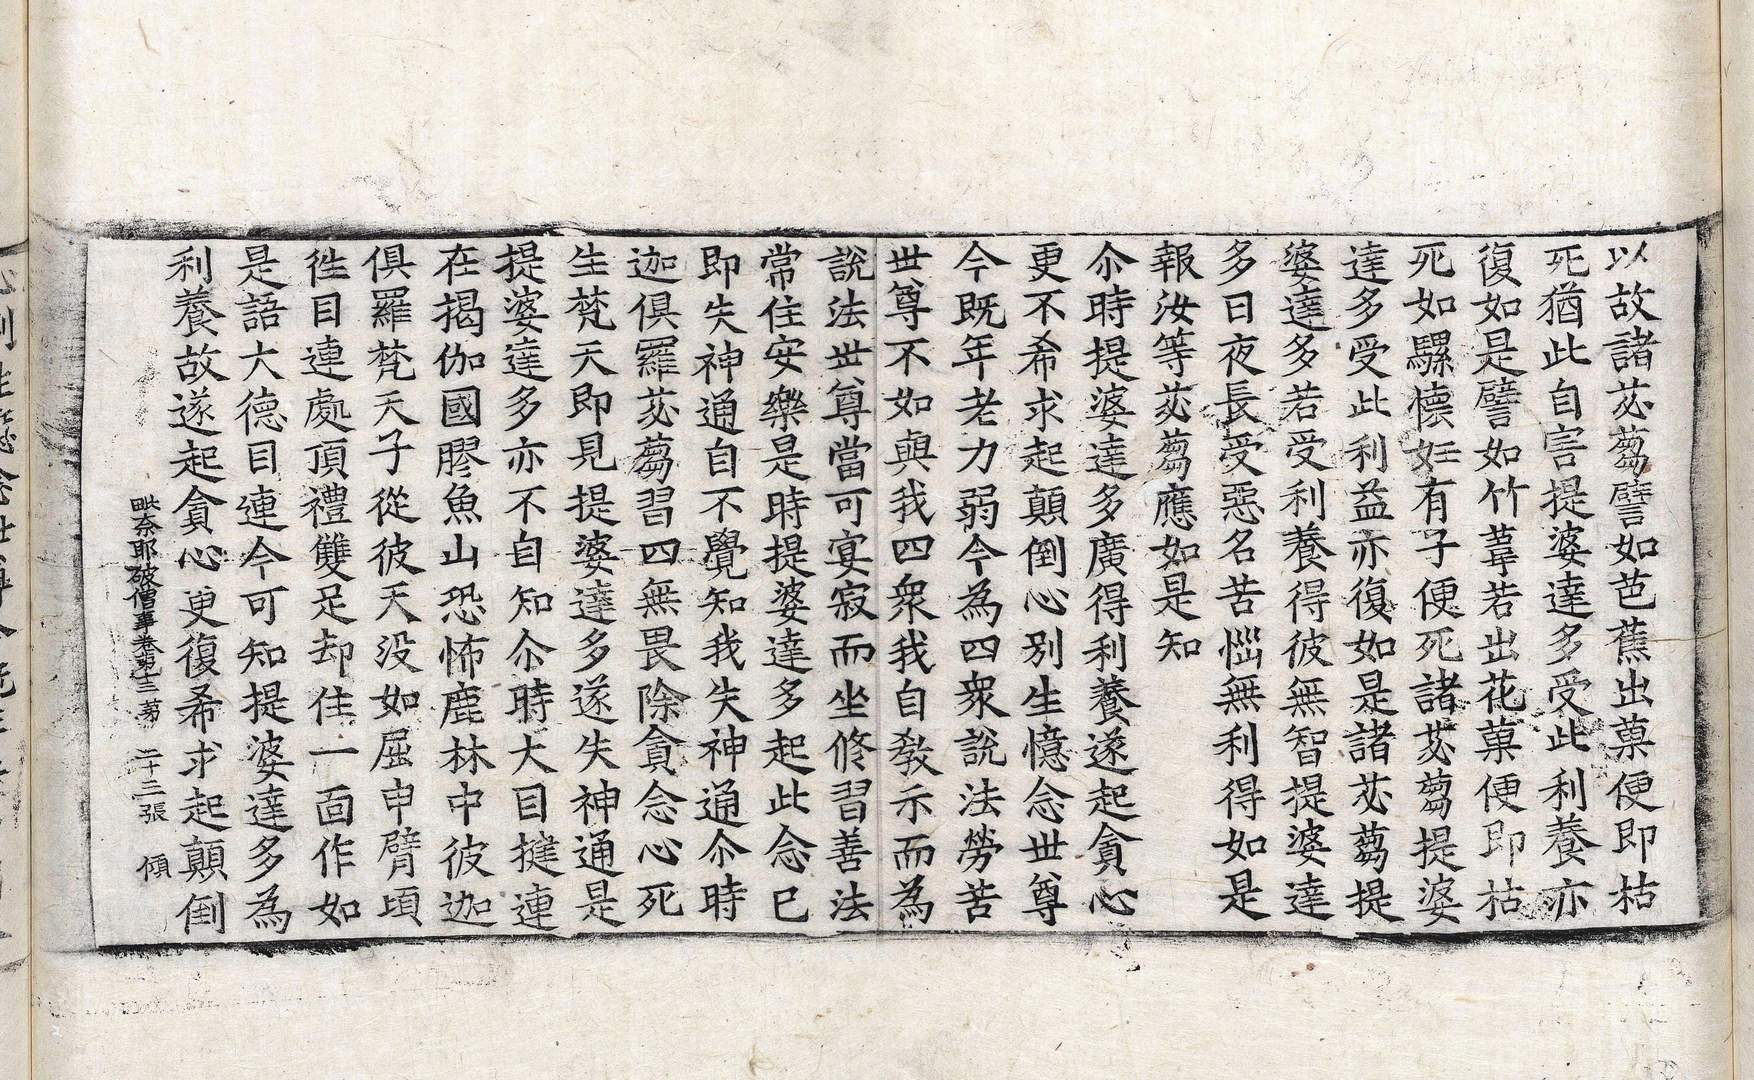 以故諸苾蒭譬如芭蕉出菓便即枯
死猶此自害提婆達多受此利養亦
復如是譬如竹葦若出花菓便即枯
死如騾懷妊有子便死諸苾蒭提婆
達多受此利益亦復如是諸苾蒭提
婆達多若受利養得彼無智提婆達
多日夜長受惡名苦惱無利得如是
報汝等苾蒭應如是知
尒時提婆達多廣得利養遂起貪心
更不希求起顛倒心別生憶念世尊
今既年老力弱今為四衆說法勞苦
世尊不如與我四衆我自教示而為
說法世尊當可宴寂而坐修習善法
常住安樂是時提婆達多起此念已
即失神通自不覺知我失神通尒時
迦俱羅苾蒭習四無畏除貪念心死
生梵天即見提婆達多遂失神通是
提婆達多亦不自知尒時大目揵連
在揭伽國膠魚山恐怖鹿林中彼迦
俱羅梵天子從彼天没如屈申臂頃
徃目連處頂禮雙足却住一面作如
是語大德目連今可知提婆達多為
利養故遂起貪心更復希求起顛倒
毗奈耶破僧事卷第十三 第二十三張 傾